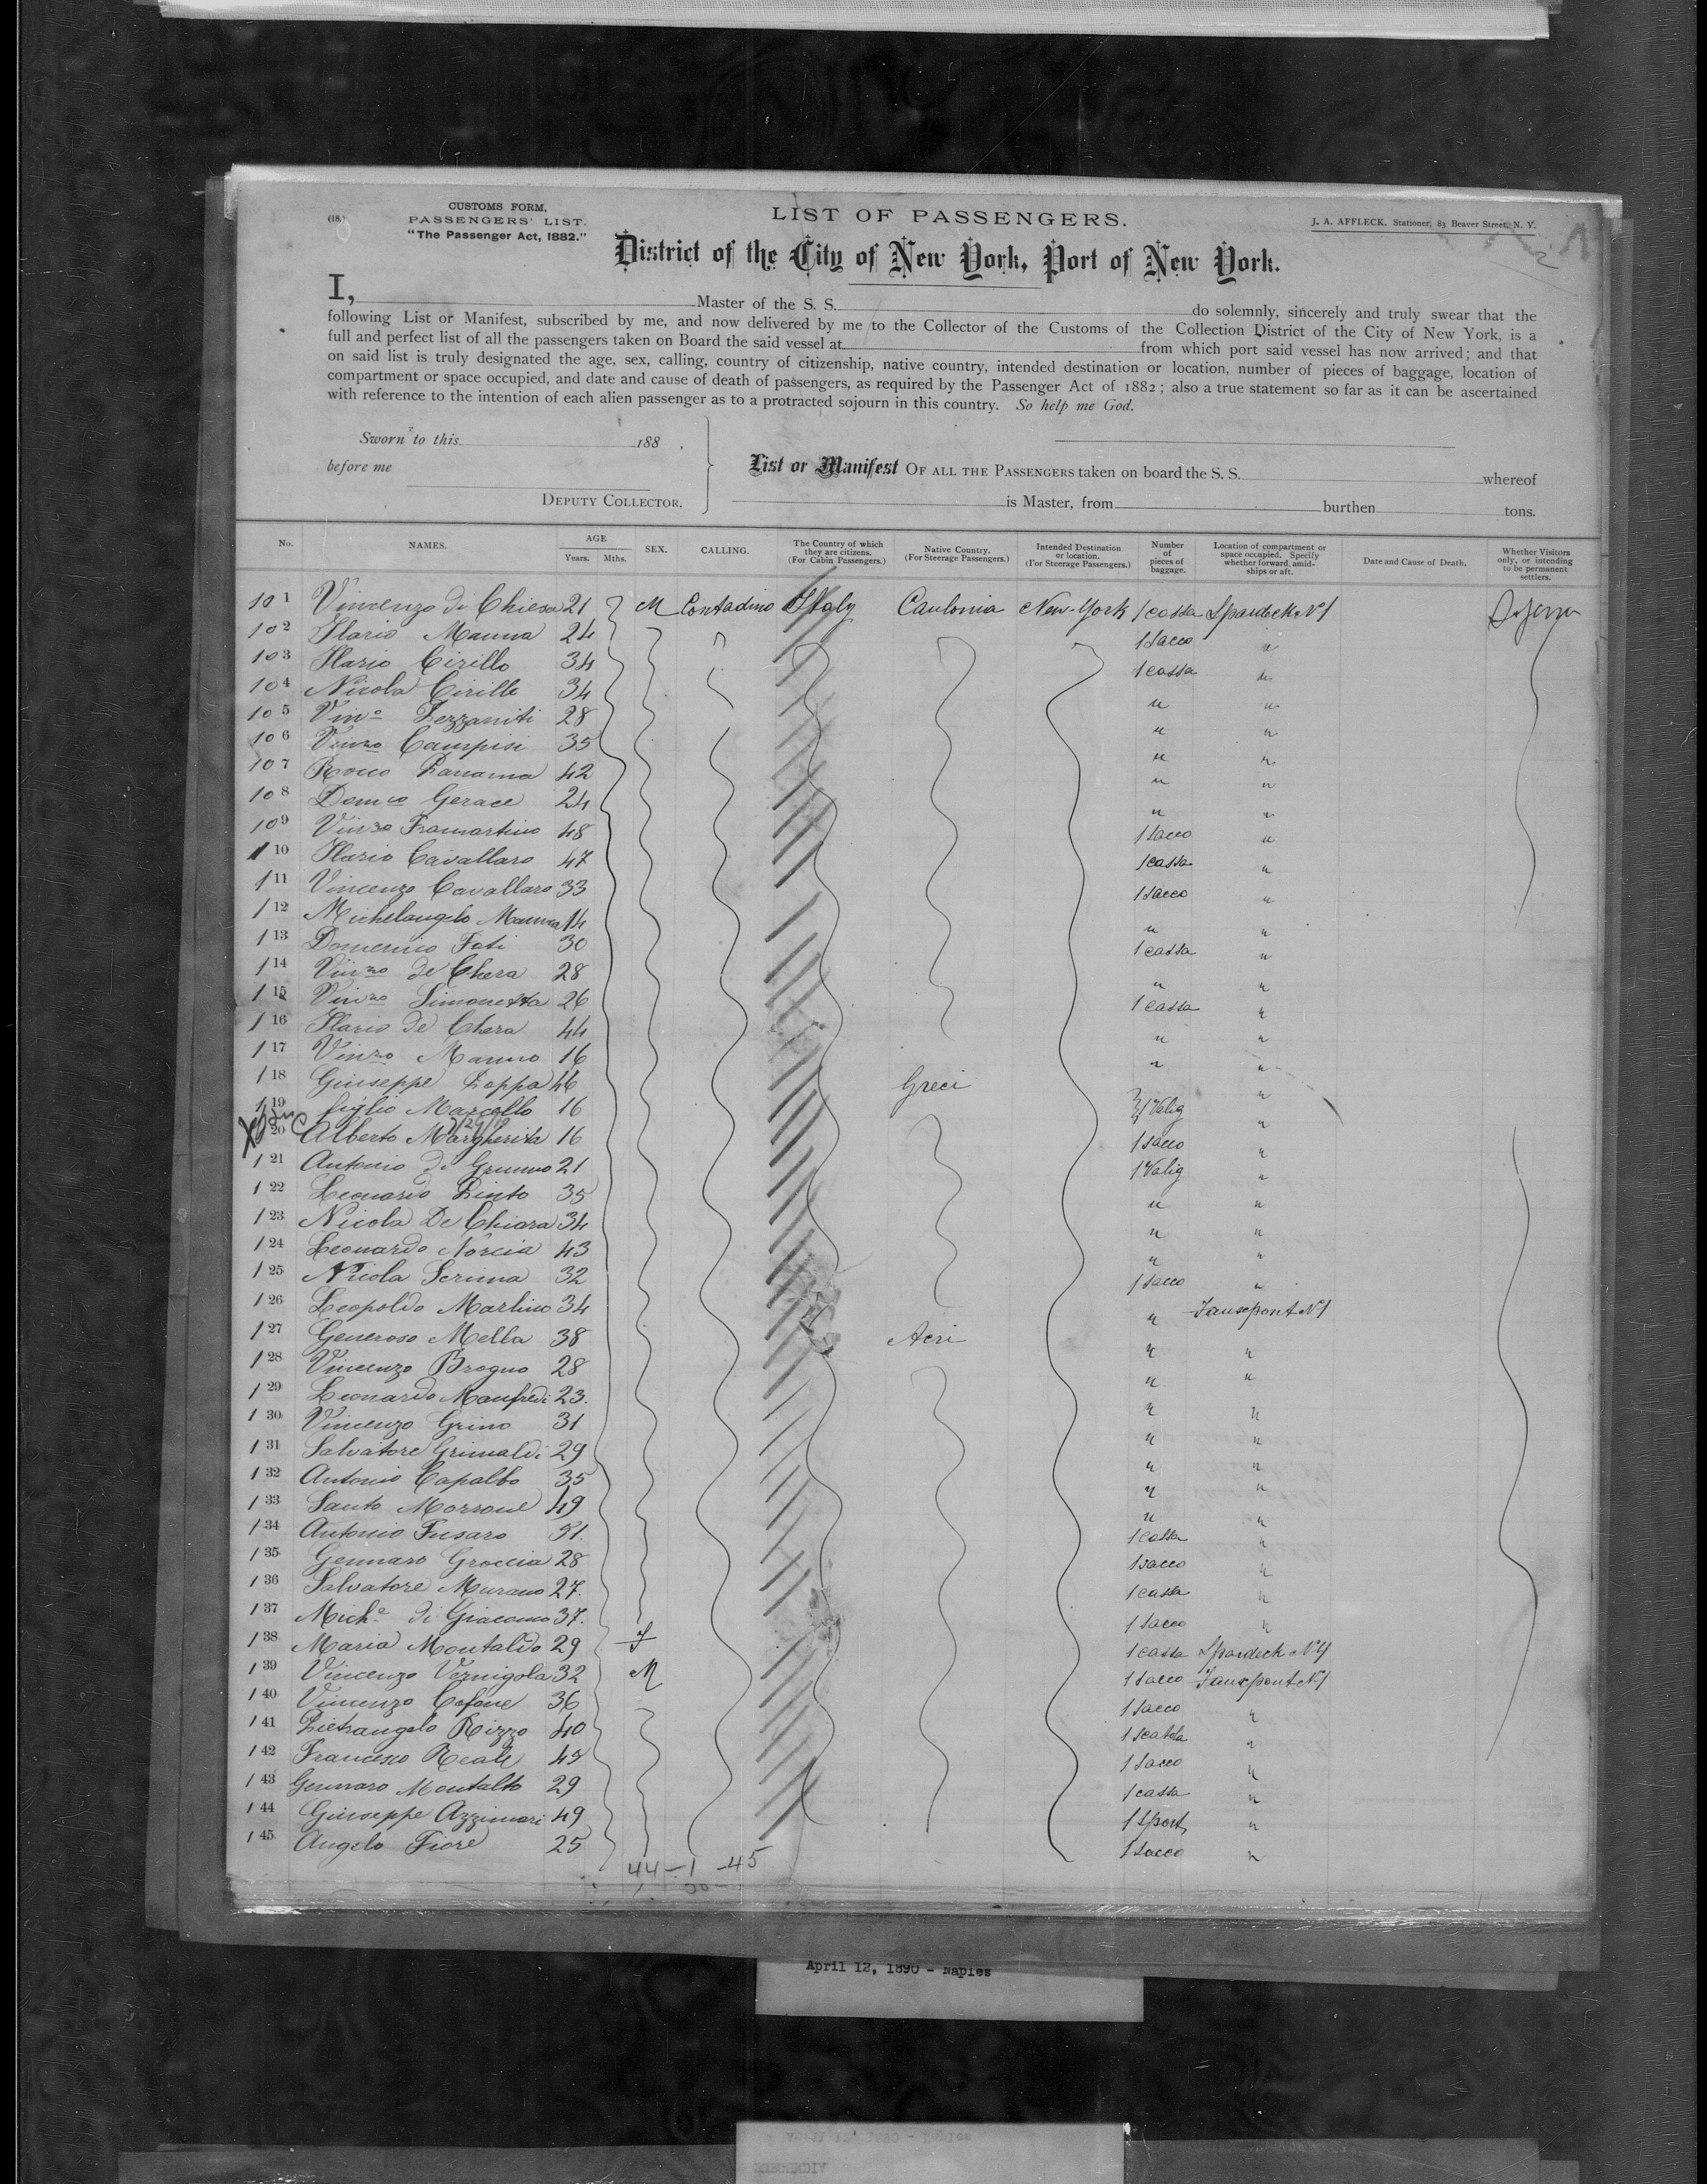 (18.)
CUSTOMS FORM,
PASSENGERS' LIST.
"The Passenger Act, 1882."
LIST OF PASSENGERS.
J. A. AFFLECK, Stationer, 83 Beaver Street, N. Y.
District of the City of New York, Port of New York.
I, Master of the S. S. do solemnly, sincerely and truly swear that the
following List or Manifest, subscribed by me, and now delivered by me to the Collector of the Customs of the Collection District of the City of New York, is a
full and perfect list of all the passengers taken on Board the said vessel at from which port said vessel has now arrived; and that
on said list is truly designated the age, sex, calling, country of citizenship, native country, intended destination or location, number of pieces of baggage, location of
compartment or space occupied, and date and cause of death of passengers, as required by the Passenger Act of 1882; also a true statement so far as it can be ascertained
with reference to the intention of each alien passenger as to a protracted sojourn in this country. So help me God.
Sworn to this 188 .
before me
DEPUTY COLLECTOR.
List or Manifest OF ALL THE PASSENGERS taken on board the S. S. whereof
is Master, from burthen tons.
No. NAMES. AGE Years. Mths. SEX. CALLING. The Country of which they are citizens. (For Cabin Passengers.) Native Country. (For Steerage Passengers.) Intended Destination or location. (For Steerage Passengers.) Number of pieces of baggage. Location of compartment or space occupied. Specify whether forward, amidships or aft. Date and Cause of Death. Whether Visitors only, or intending to be permanent settlers.
101 Vincenzo di Chiesa 21 M Contadino Italy Caulonia New-York 1 cassa Spardeck N1
102 Ilario Manna 24 1 sacco "
103 Ilario Cirillo 34 1 cassa "
104 Nicola Cirillo 34 " "
105 Vino Lezzaniti 28 " "
106 Vinzo Campisi 35 " "
107 Rocco Panama 42 " "
108 Domco Gerace 24 " "
109 Vinzo Framartino 48 1 sacco "
110 Ilario Cavallaro 47 1 cassa "
111 Vincenzo Cavallaro 33 1 sacco "
112 Michelangelo Manna 14 " "
113 Domenico Foti 30 1 cassa "
114 Vinzo de Chera 28 " "
115 Vinzo Simonetta 26 1 cassa "
116 Ilario de Chera 44 " "
117 Vinzo Manno 16 " "
118 Giuseppe Zoppa 46 Greci "
119 figlio Marcello 16 1 Valig "
120 Alberto Margherita 16 1 sacco "
121 Antonio di Grumo 21 1 Valig "
122 Leonardo Pinto 35 " "
123 Nicola De Chiara 34 " "
124 Leonardo Norcia 43 " "
125 Nicola Serima 32 1 sacco "
126 Leopoldo Martino 34 " N1
127 Generoso Mella 38 Acri " "
128 Vincenzo Brogno 28 " "
129 Leonardo Manfredi 23. " "
130 Vincenzo Grino 31 " "
131 Salvatore Grimaldi 29 " "
132 Antonio Capalbo 35 " "
133 Santo Morrone 49 " "
134 Antonio Fusaro 51. 1 cassa "
135 Gennaro Groccia 28 1 sacco "
136 Salvatore Murano 27. 1 cassa "
137 Miche di Giacomo 37. 1 sacco "
138 Maria Montaldo 29 F 1 cassa Spardeck N4
139 Vincenzo Vernigola 32 M 1 sacco N1
140 Vincenzo Cofone 36 1 sacco "
141 Pietrangelo Rizzo 40 1 scatola "
142 Francesco Reale 45 1 sacco "
143 Gennaro Montalto 29 1 cassa "
144 Giuseppe Azzinnari 49 1 sport "
145 Angelo Fiore 25 1 sacco "
44-1 -45
April 12, 1890 - Naples